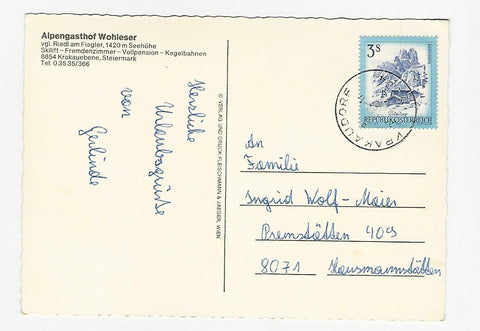 Alpengasthof Wohleser
vgl. Riedl am Fiegler, 1420 m Seehöhe
Skilift – Fremdenzimmer – Vollpension – Kegelbahnen
8854 Krakauebene, Steiermark
Tel. 0 35 35/366
Herzliche
Urlaubsgrüße
von
Gerlinde
© VERLAG UND DRUCK FLEISCHMANN & JAEGER, WIEN
3S
REPUBLIK ÖSTERREICH
KRAKAUDORF
An
Familie
Ingrid Wolf-Maier
Premstätten 409
8071 Hausmannstätten